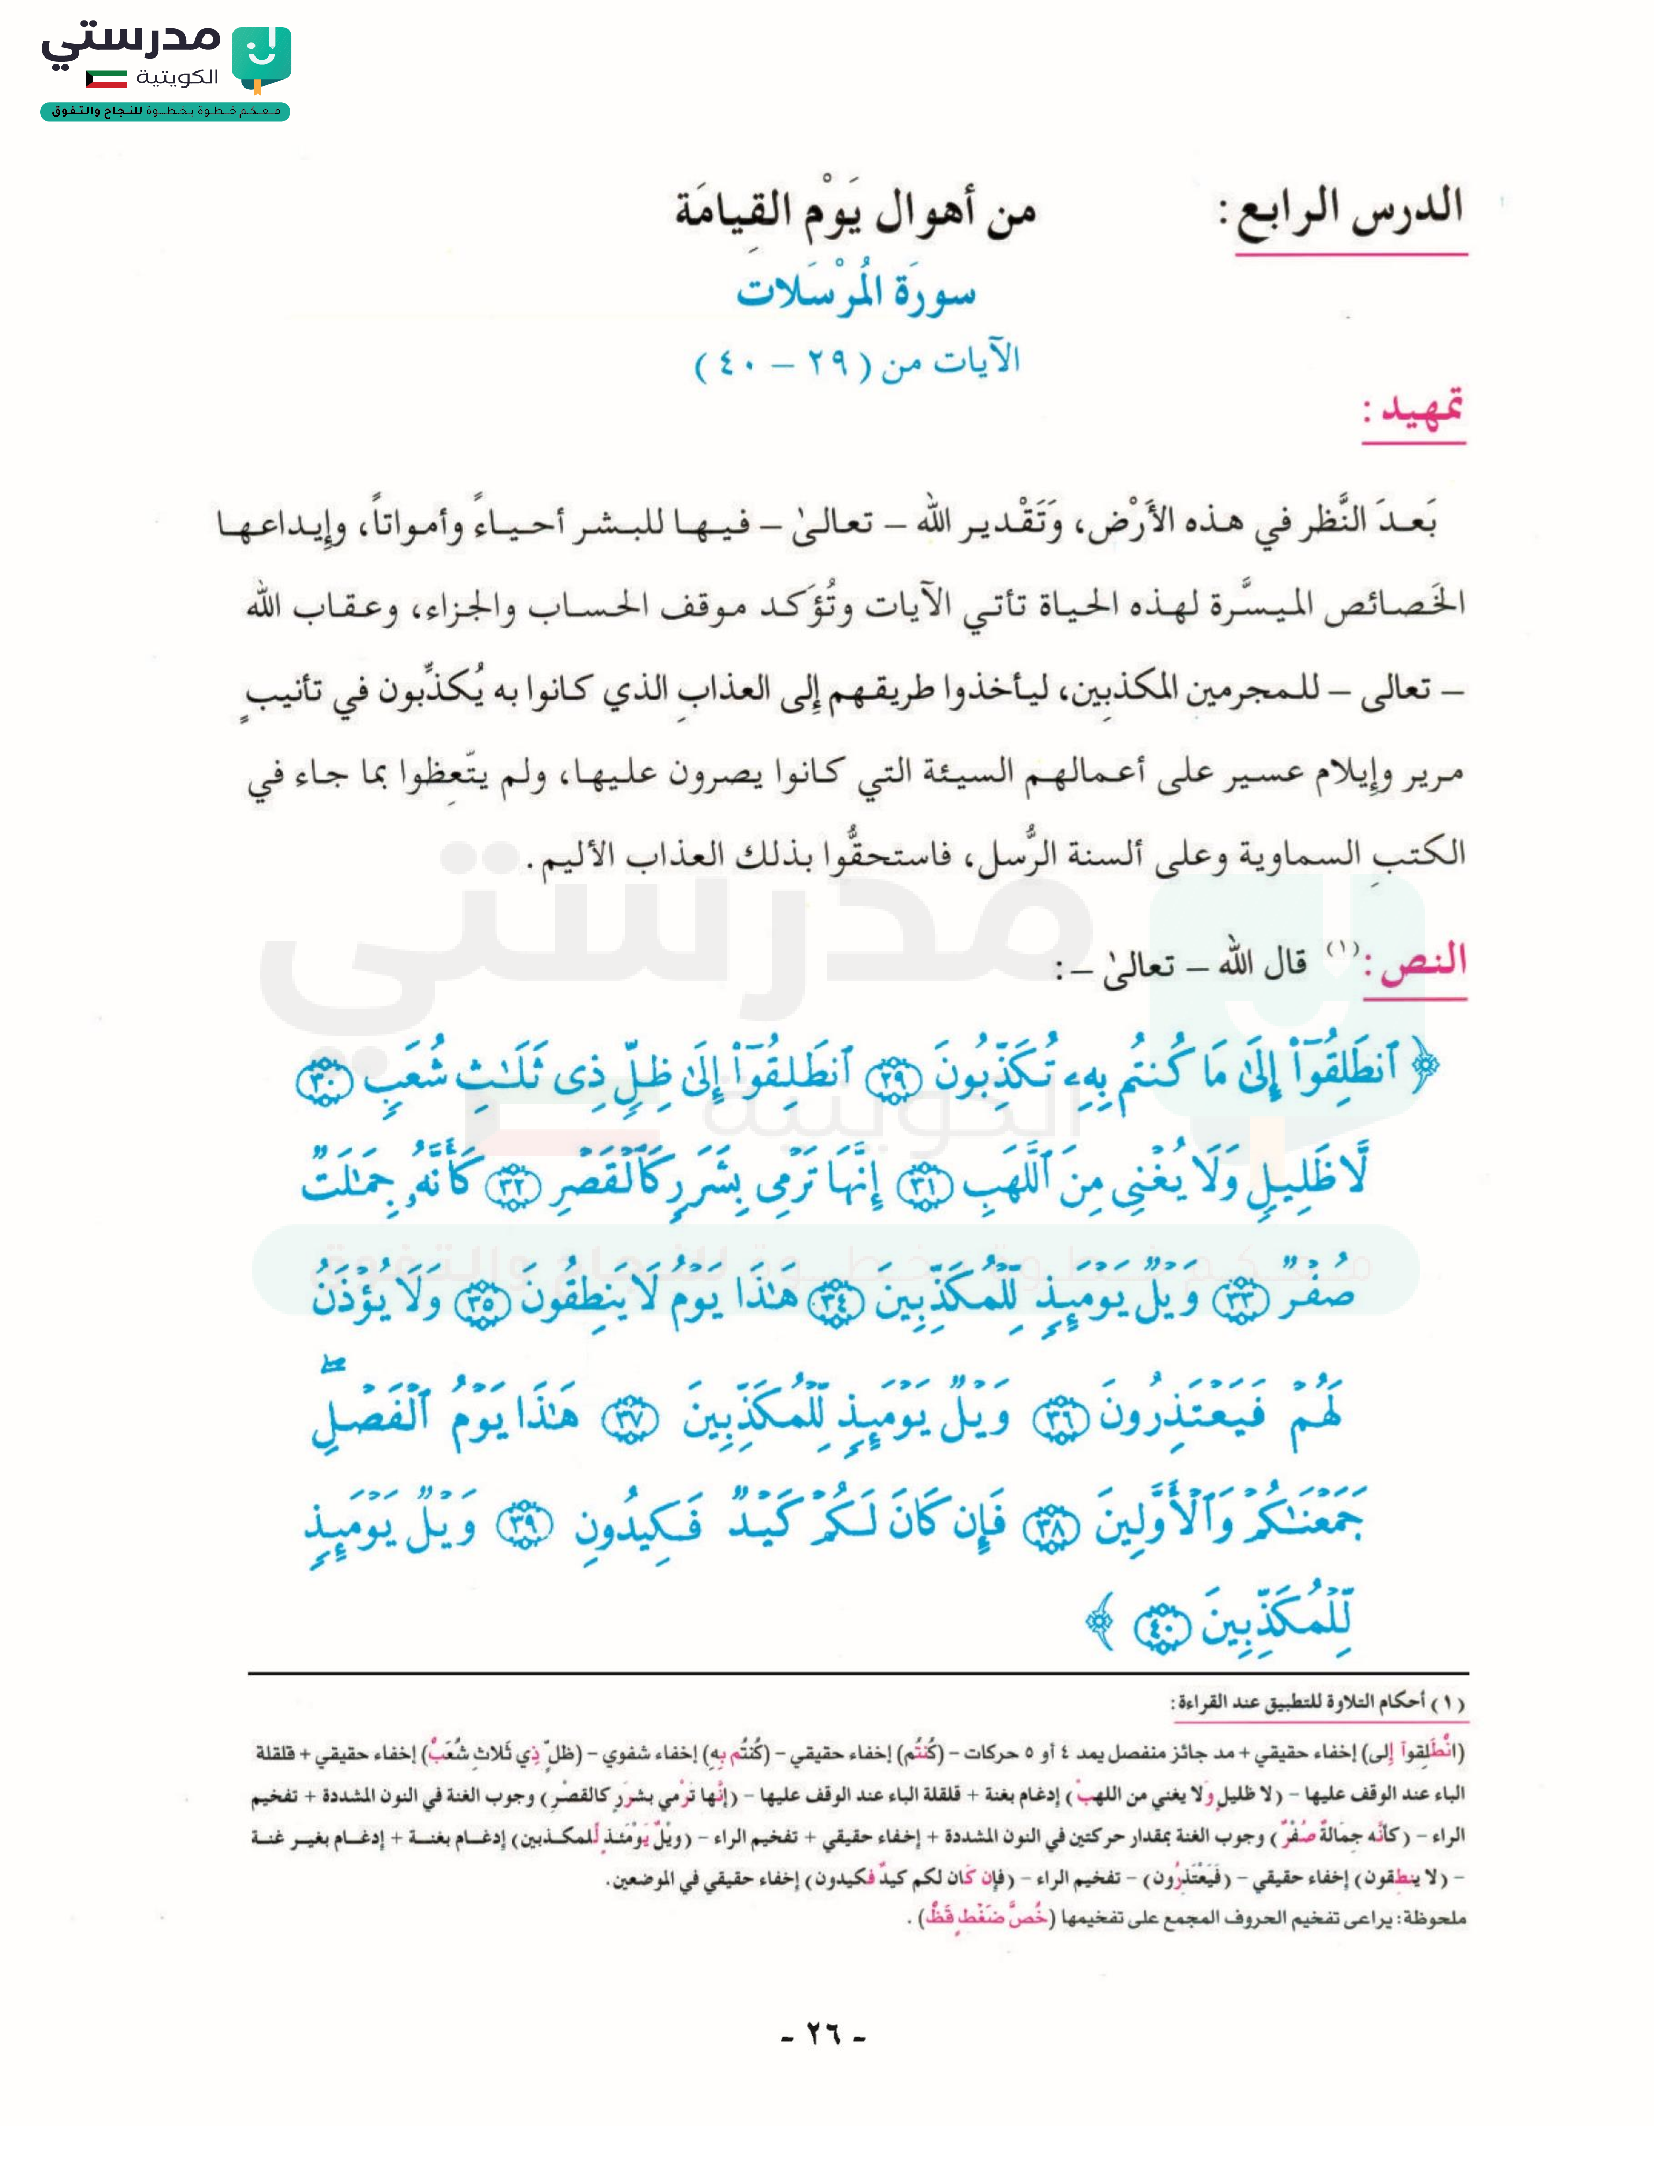 مدرستي
الكويتية
معكم خطوة بخطوة للنجاح والتفوق
الدرس الرابع: من أهوال يَوْم القِيامَة
سورَة المُرْسَلات
الآيات من (٢٩ – ٤٠)
تمهيد:
بَعدَ النَّظر في هذه الأَرْض، وَتَقْدير الله – تعالىٰ – فيها للبشر أحياءً وأمواتاً، وإِيداعها
الخَصائص الميسَّرة لهذه الحياة تأتي الآيات وتُؤَكد موقف الحساب والجزاء، وعقاب الله
– تعالى – للمجرمين المكذبِين، ليأخذوا طريقهم إِلى العذابِ الذي كانوا به يُكذِّبون في تأنيبٍ
مرير وإِيلام عسير على أعمالهم السيئة التي كانوا يصرون عليها، ولم يتّعِظوا بما جاء في
الكتبِ السماوية وعلى ألسنة الرُّسل، فاستحقُّوا بذلك العذاب الأليم.
النص:(١) قال الله – تعالىٰ –:
﴿ ٱنطَلِقُوٓاْ إِلَىٰ مَا كُنتُم بِهِۦ تُكَذِّبُونَ ٢٩ ٱنطَلِقُوٓاْ إِلَىٰ ظِلّٖ ذِي ثَلَٰثِ شُعَبٖ ٣٠
لَّا ظَلِيلٖ وَلَا يُغۡنِي مِنَ ٱللَّهَبِ ٣١ إِنَّهَا تَرۡمِي بِشَرَرٖ كَٱلۡقَصۡرِ ٣٢ كَأَنَّهُۥ جِمَٰلَتٞ
صُفۡرٞ ٣٣ وَيۡلٞ يَوۡمَئِذٖ لِّلۡمُكَذِّبِينَ ٣٤ هَٰذَا يَوۡمُ لَا يَنطِقُونَ ٣٥ وَلَا يُؤۡذَنُ
لَهُمۡ فَيَعۡتَذِرُونَ ٣٦ وَيۡلٞ يَوۡمَئِذٖ لِّلۡمُكَذِّبِينَ ٣٧ هَٰذَا يَوۡمُ ٱلۡفَصۡلِۖ
جَمَعۡنَٰكُمۡ وَٱلۡأَوَّلِينَ ٣٨ فَإِن كَانَ لَكُمۡ كَيۡدٞ فَكِيدُونِ ٣٩ وَيۡلٞ يَوۡمَئِذٖ
لِّلۡمُكَذِّبِينَ ٤٠ ﴾
(١) أحكام التلاوة للتطبيق عند القراءة:
(انْطَلِقوآ إِلى) إخفاء حقيقي + مد جائز منفصل يمد ٤ أو ٥ حركات – (كُنتُم) إخفاء حقيقي – (كُنتُم بِهِ) إخفاء شفوي – (ظلٍّ ذِي ثَلاث شُعَبْ) إخفاء حقيقي + قلقلة
الباء عند الوقف عليها – (لا ظليلٍ وَلا يغني من اللهبْ) إدغام بغنة + قلقلة الباء عند الوقف عليها – (إنَّها تَرْمي بشررٍ كالقصْر) وجوب الغنة في النون المشددة + تفخيم
الراء – (كأنَّه جمَالةٌ صُفْرٌ) وجوب الغنة بمقدار حركتين في النون المشددة + إخفاء حقيقي + تفخيم الراء – (ويْلٌ يَوْمَئذٍ لِّلمكذبين) إدغام بغنة + إدغام بغير غنة
– (لا ينطقون) إخفاء حقيقي – (فَيَعْتَذِرُون) – تفخيم الراء – (فإن كَان لكم كيدٌ فكيدون) إخفاء حقيقي في الموضعين.
ملحوظة: يراعى تفخيم الحروف المجمع على تفخيمها (خُصَّ ضَغْطٍ قَظْ).
- ٢٦ -